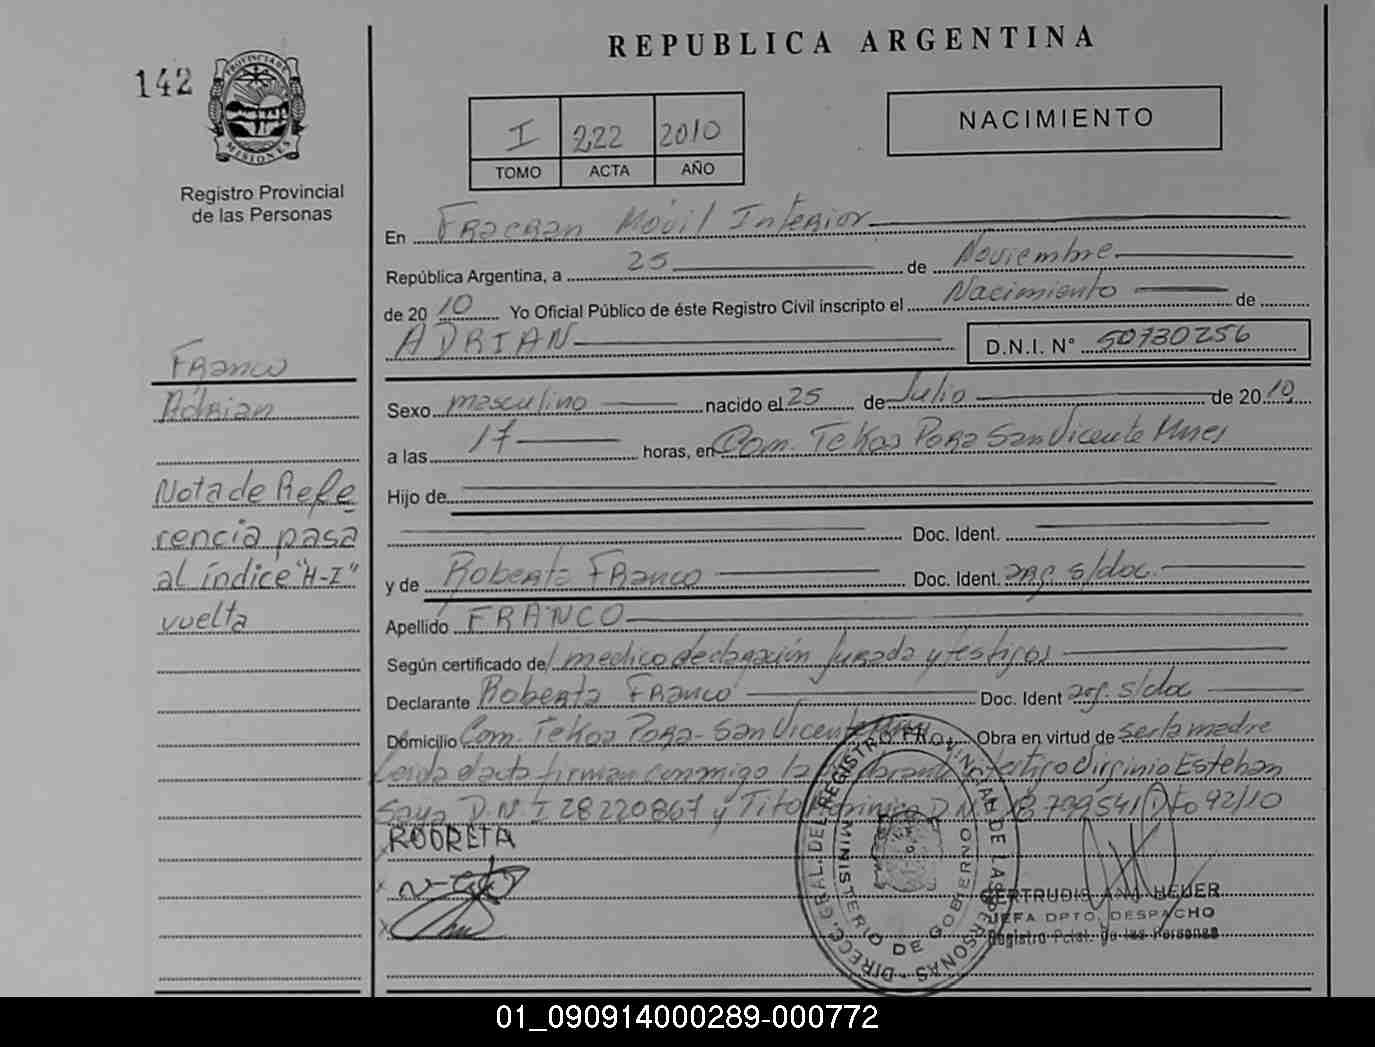 REPUBLICA ARGENTINA
142
PROVINCIA DE MISIONES
Registro Provincial
de las Personas
I 222 2010
TOMO ACTA AÑO
NACIMIENTO
En Fracran Móvil Interior
República Argentina, a 25 de Noviembre
de 2010 Yo Oficial Público de éste Registro Civil inscripto el Nacimiento de
ADRIAN D.N.I. N° 50730256
Franco
Adrian
Nota de Refe
rencia pasa
al índice "H-I"
vuelta
Sexo masculino nacido el 25 de Julio de 2010
a las 17 horas, en Com. Tekoa Pora San Vicente Mnes
Hijo de
Doc. Ident.
y de Roberta Franco Doc. Ident. arg. s/doc.
Apellido FRANCO
Según certificado de medico declaración Jurada y testigos
Declarante Roberta Franco Doc. Ident arg. s/doc
Domicilio Com. Tekoa Pora - San Vicente Obra en virtud de ser la madre
Leida el acta firman conmigo la testigo Virginio Esteban
D.N.I 28220867 y Tito 92/10
ROBRETA
DIREC. GRAL. DEL REGISTRO PROVINCIAL DE LAS PERSONAS
MINISTERIO DE GOBIERNO
GERTRUDIS ANA HEUER
JEFA DPTO. DESPACHO
Registro Pcial. de las Personas
01_090914000289-000772